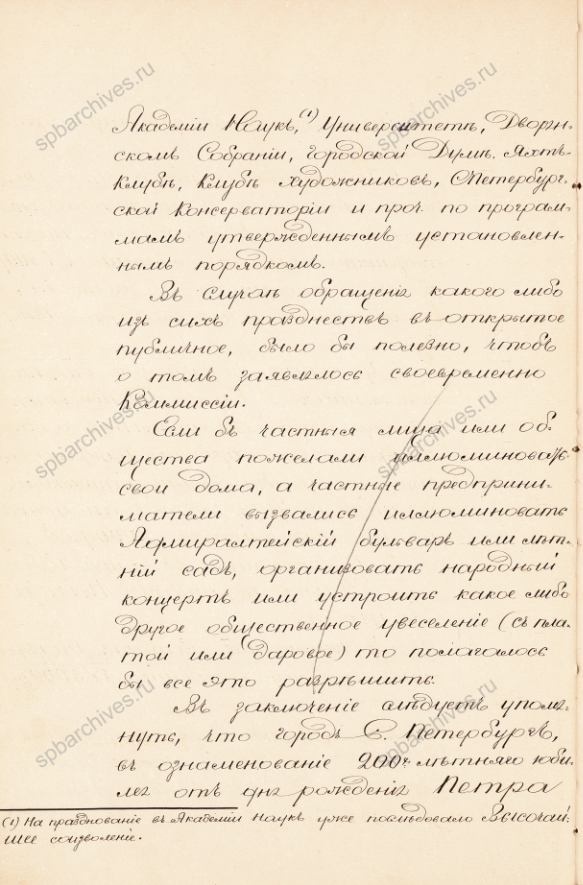 Академіи Наукъ,(1) Университетѣ, Дворян-
скомъ Собраніи, Городской Думѣ, Яхтъ-
Клубѣ, Клубѣ художниковъ, С.Петербург-
ской Консерваторіи и проч. по програм-
мамъ утвержденнымъ установлен-
нымъ порядкомъ.
Въ случаѣ обращенія какого либо
изъ сихъ празднествъ въ открытое
публичное, было бы полезно, чтобъ
о томъ заявлялось своевременно
Коммиссіи.
Если бъ частныя лица или об-
щества пожелали иллюминовать
свои дома, а частные предприни-
матели вызвались иллюминовать
Адмиралтейскій бульваръ или лѣт-
ній садъ, организовать народный
концертъ или устроить какое либо
другое общественное увеселеніе (съ пла-
той или даровое) то полагалось
бы все это разрѣшить.
Въ заключеніе слѣдуетъ упомя-
нуть, что городъ С. Петербургъ,
въ ознаменованіе 200ти лѣтняго юби-
лея отъ дня рожденія Петра
(1) На празднованіе въ Академіи Наукъ уже послѣдовало Высочай-
шее соизволеніе.
spbarchives.ru
spbarchives.ru
spbarchives.ru
spbarchives.ru
spbarchives.ru
spbarchives.ru
spbarchives.ru
spbarchives.ru